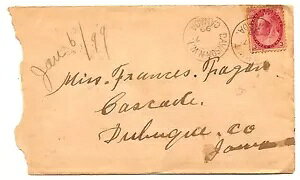 Jan 6/99
CANADA
Miss. Frances. Fagan
Cascade.
Dubuque. Co
Iowa